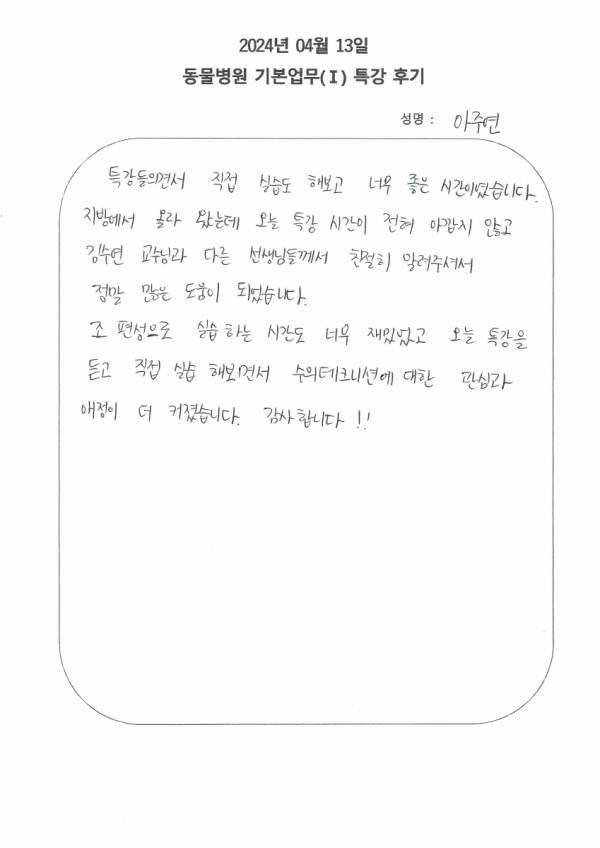 2024년 04월 13일
동물병원 기본업무(Ⅰ) 특강 후기
성명 : 이주연
특강들으면서 직접 실습도 해보고 너무 좋은 시간이었습니다.
지방에서 올라 왔는데 오늘 특강 시간이 전혀 아깝지 않고
김수연 교수님과 다른 선생님들께서 친절히 알려주셔서
정말 많은 도움이 되었습니다.
조 편성으로 실습 하는 시간도 너무 재밌었고 오늘 특강을
듣고 직접 실습 해보면서 수의테크니션에 대한 관심과
애정이 더 커졌습니다. 감사합니다 !!